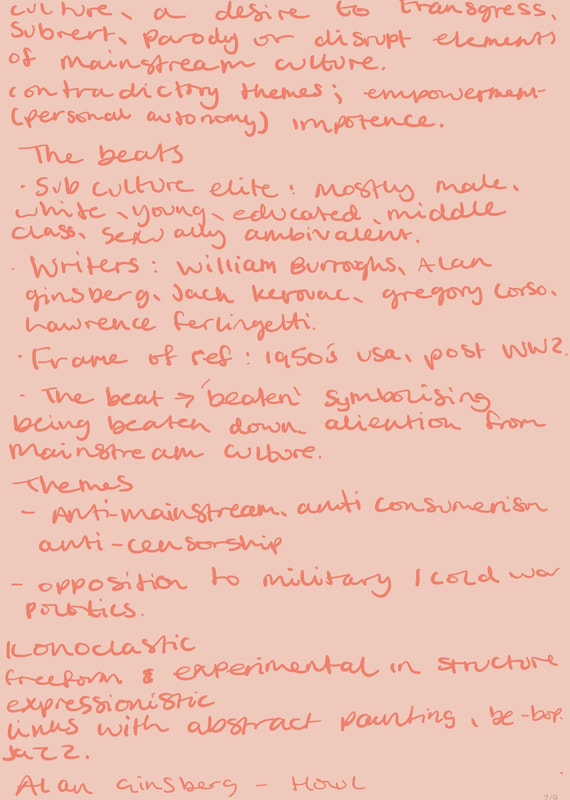 culture, a desire to transgress,
subvert, parody or disrupt elements
of mainstream culture.
contradictory themes; empowerment
(personal autonomy) impotence.
The beats
· Sub culture elite: mostly male,
white, young, educated, middle
class, sexually ambivalent.
· Writers: William Burroughs, Alan
ginsberg, Jack Kerouac, gregory Corso,
Lawrence ferlingetti.
· Frame of ref: 1950's usa, post WW2.
· The beat → 'beaten' symbolising
being beaten down. aliention from
mainstream culture.
Themes
- Anti-mainstream, anti consumerism
anti-censorship
- opposition to military / cold war
politics.
Iconoclastic
freeform & experimental in structure
expressionistic
links with abstract painting, be-bop.
Jazz.
Alan Ginsberg - Howl
2/9